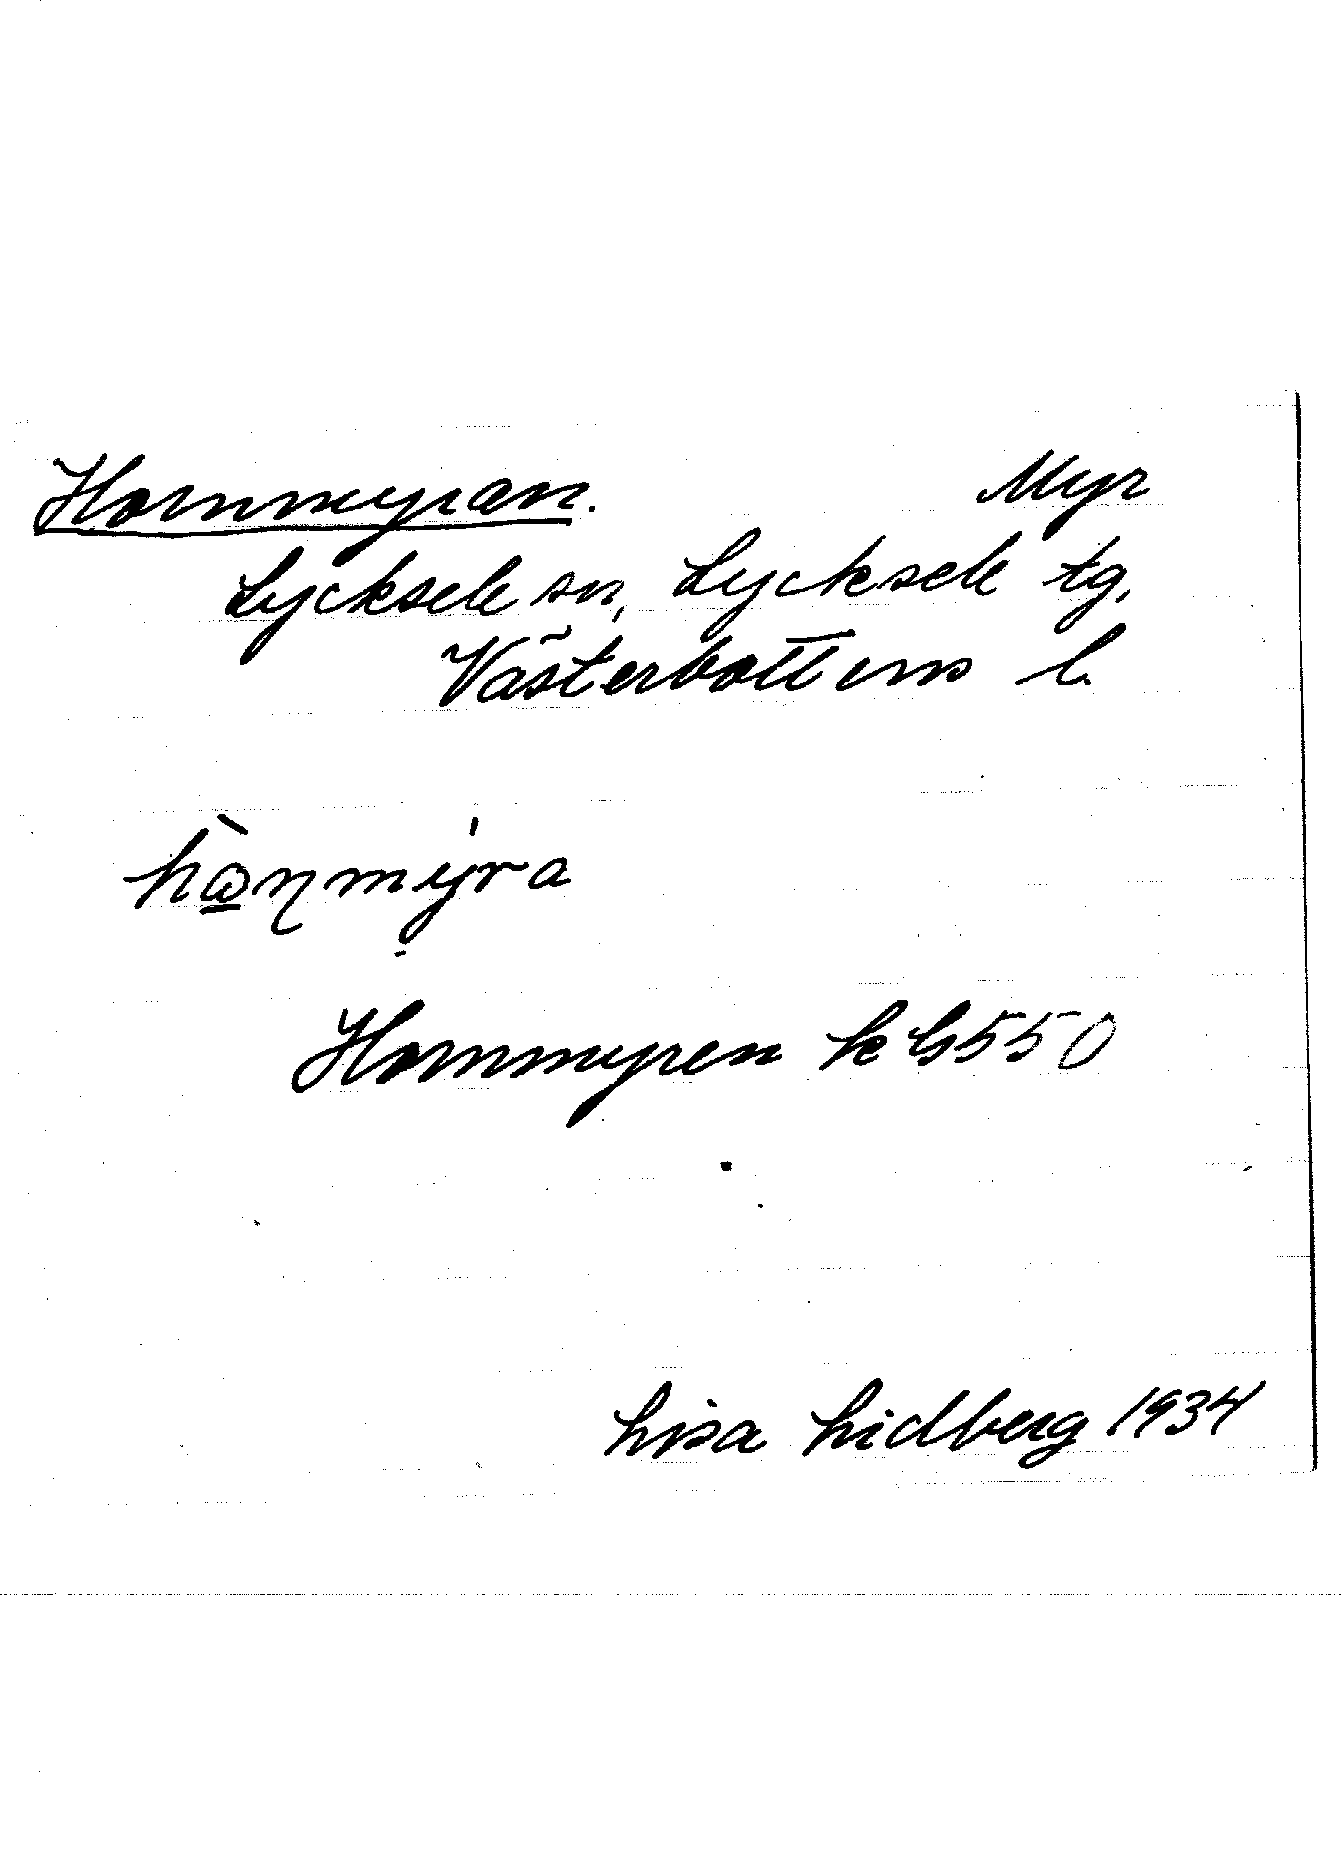 Hornmyran. Myr
Lycksele sn, Lycksele tg,
Västerbottens l.
hò̱ŋmy̍ra
Hornmyren k G550
Lisa Lidberg 1934